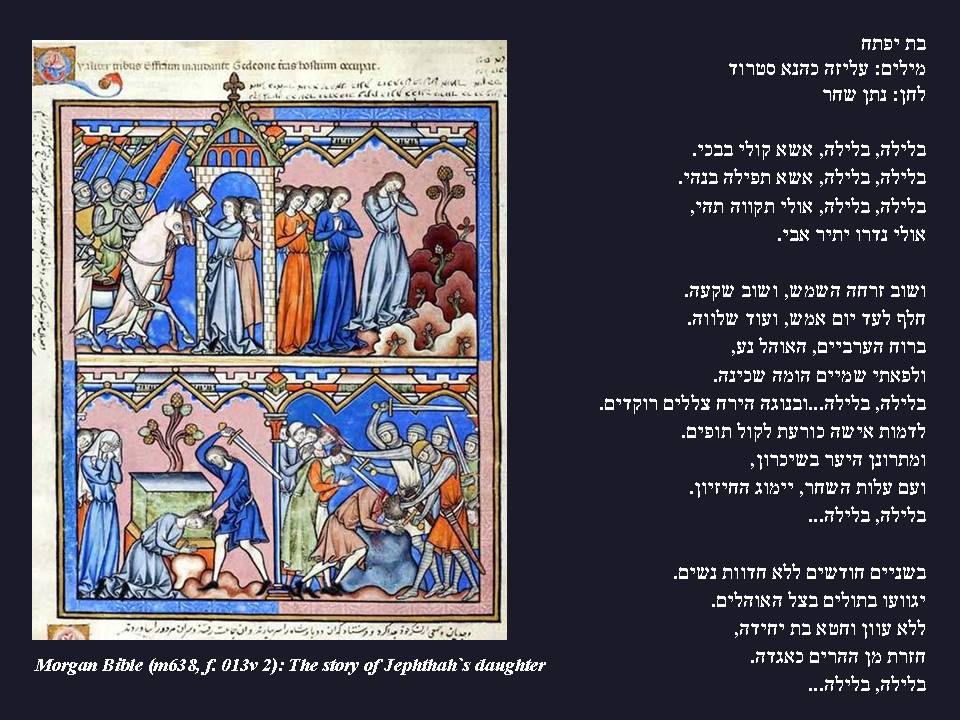 בת יפתח
מילים: עליזה כהנא סטרוד
לחן: נתן שחר
בלילה, בלילה, אשא קולי בבכי.
בלילה, בלילה, אשא תפילה בנהי.
בלילה, בלילה, אולי תקווה תהי,
אולי נדרו יתיר אבי.
ושוב זרחה השמש, ושוב שקעה.
חלף לעד יום אמש, ועוד שלווה.
ברוח הערביים, האוהל נע,
ולפאתי שמיים הומה שכינה.
בלילה, בלילה...ובנוגה הירח צללים רוקדים.
לדמות אישה כורעת לקול תופים.
ומתרונן היער בשיכרון,
ועם עלות השחר, יימוג החיזיון.
בלילה, בלילה...
בשניים חודשים ללא חדוות נשים.
יגוועו בתולים בצל האוהלים.
ללא עוון וחטא בת יחידה,
חזרת מן ההרים כאגדה.
בלילה, בלילה...
Morgan Bible (m638, f. 013v 2): The story of Jephthah`s daughter